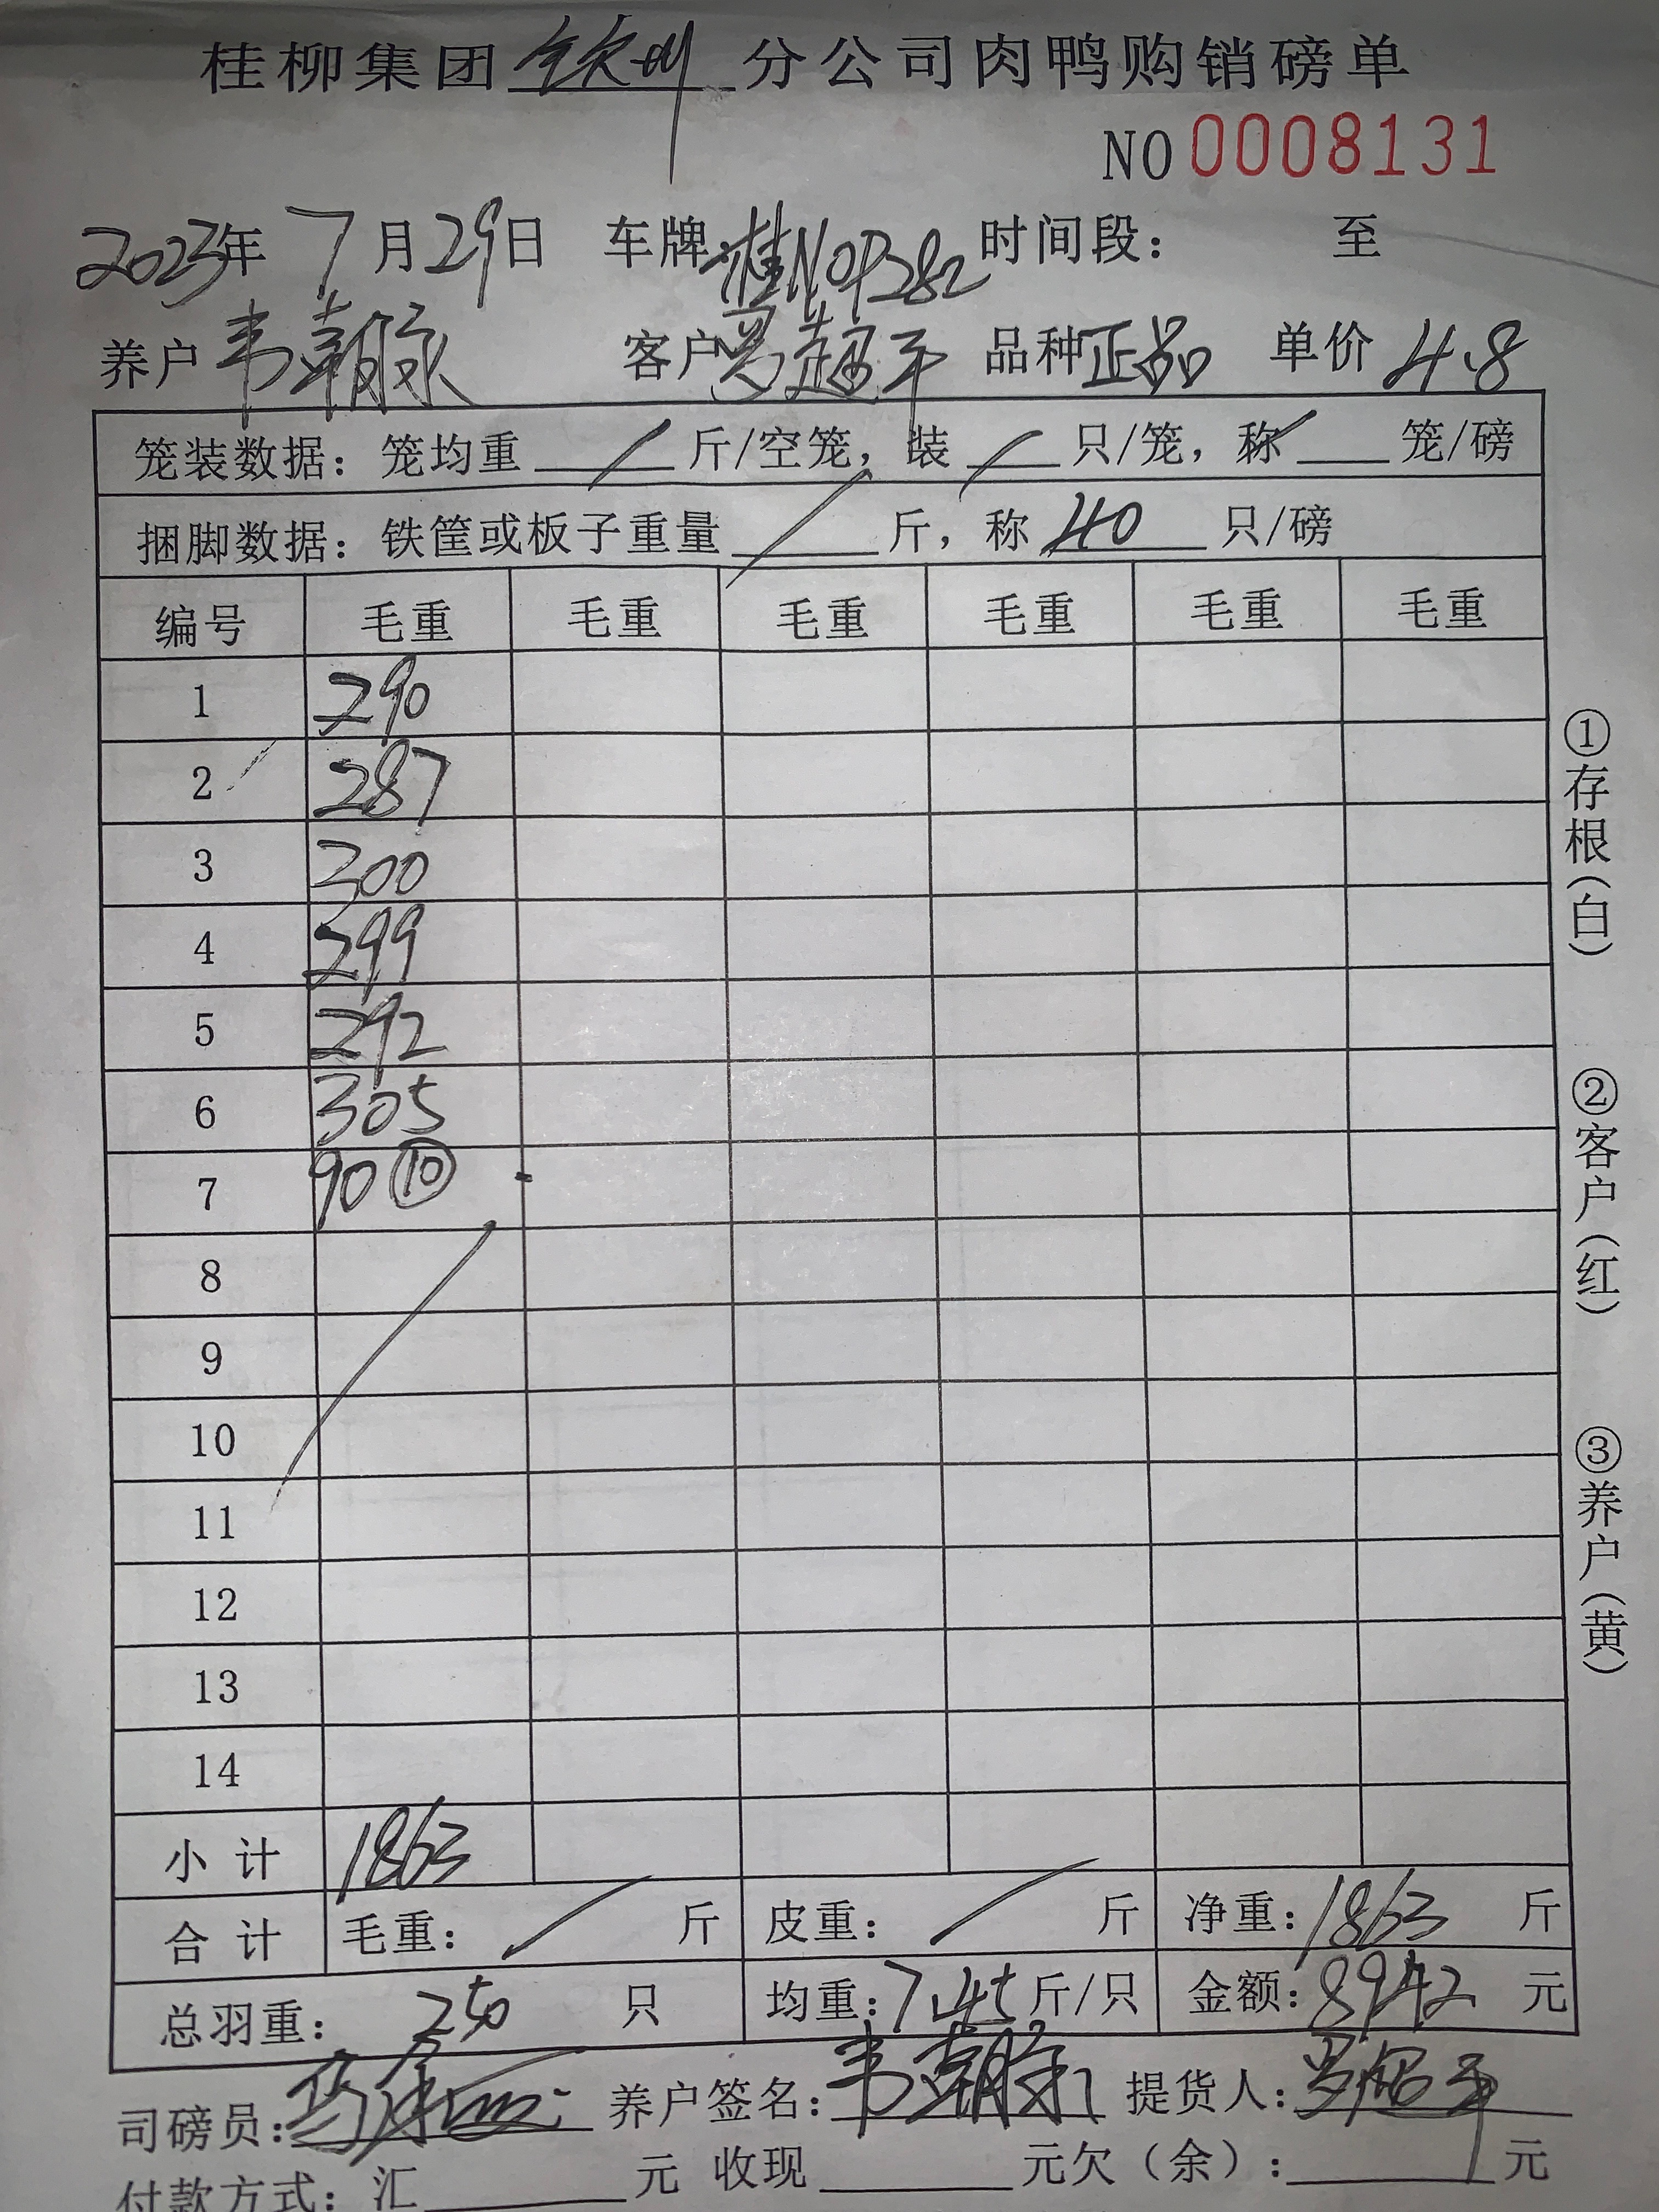 桂柳集团钦州分公司肉鸭购销磅单
NO 0008131
2023年 7月29日 车牌:桂N0P382 时间段: 至
养户 韦朝 客户 罗超平 品种 正品 单价 4.8
笼装数据: 笼均重 / 斤/空笼, 装 / 只/笼, 称 / 笼/磅
捆脚数据: 铁筐或板子重量 / 斤, 称 40 只/磅
编号 毛重 毛重 毛重 毛重 毛重 毛重
1 290
2 287
3 300
4 299
5 292
6 305
7 90 ⑩
8
9
10
11
12
13
14
小计 1863
合计 毛重: / 斤 皮重: / 斤 净重: 1863 斤
总羽重: 250 只 均重: 7.45 斤/只 金额: 8942 元
司磅员: 养户签名: 韦朝 提货人: 罗超平
付款方式: 汇 元 收现 元欠(余): 元
①存根(白)
②客户(红)
③养户(黄)